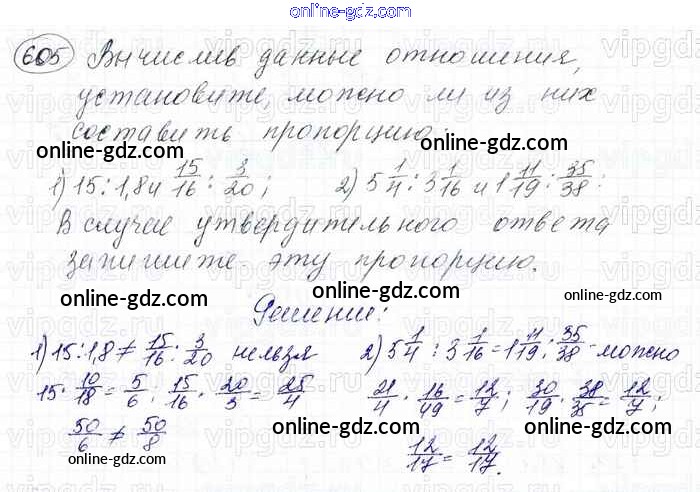 online-gdz.com
605 Вычислив данные отношения,
установите, можно ли из них
составить пропорцию:
online-gdz.com online-gdz.com
1) 15 : 1,8 и 15/16 : 3/20 ; 2) 5 1/4 : 3 1/16 и 1 11/19 : 35/38 .
В случае утвердительного ответа
запишите эту пропорцию.
online-gdz.com online-gdz.com
Решение:
1) 15 : 1,8 ≠ 15/16 : 3/20 нельзя 2) 5 1/4 : 3 1/16 = 1 11/19 : 35/38 - можно
15 · 10/18 = 5/6 ; 15/16 · 20/3 = 25/4 21/4 · 16/49 = 12/7 ; 30/19 · 38/35 = 12/7 ;
online-gdz.com online-gdz.com
50/6 ≠ 50/8 12/17 = 12/17 .
online-gdz.com online-gdz.com